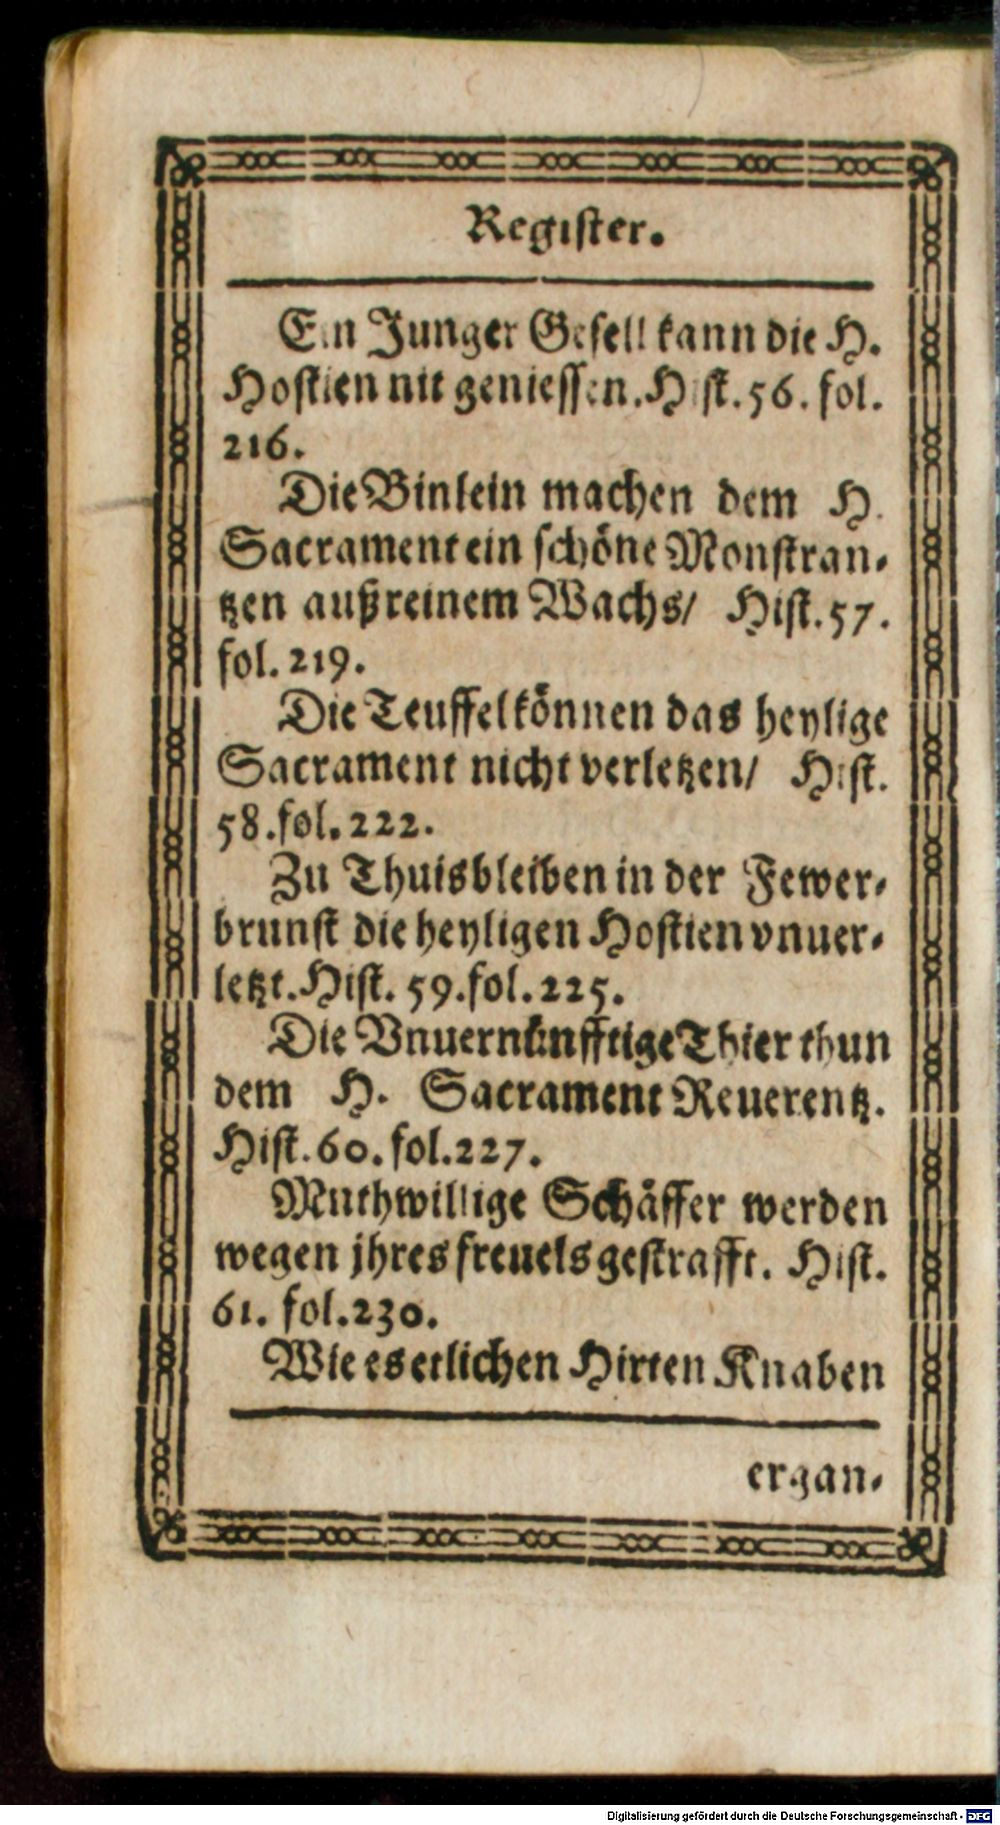 Register.
Ein Junger Gesell kann die H.
Hostien nit geniessen. Hist. 56. fol.
216.
Die Binlein machen dem H.
Sacrament ein schöne Monstran-
tzen auß reinem Wachs/ Hist. 57.
fol. 219.
Die Teuffel können das heylige
Sacrament nicht verletzen/ Hist.
58. fol. 222.
Zu Thuis bleiben in der Fewer-
brunst die heyligen Hostien vnuer-
letzt. Hist. 59. fol. 225.
Die Vnuernünfftige Thier thun
dem H. Sacrament Reuerentz.
Hist. 60. fol. 227.
Muthwillige Schäffer werden
wegen jhres freuels gestrafft. Hist.
61. fol. 230.
Wie es etlichen Hirten Knaben
ergan-
Digitalisierung gefördert durch die Deutsche Forschungsgemeinschaft - DFG